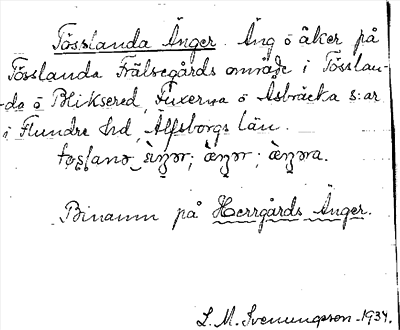 Tösslanda Änger. Äng o åker på
Tösslanda Frälsegårds område i Tösslan-
da o Bliksered, Fuxerna o Åsbräcka s:ar
i Flundre hd, Älfsborgs län.
Binamn på Herrgårds Änger.
L. M. Svenungsson-1934.